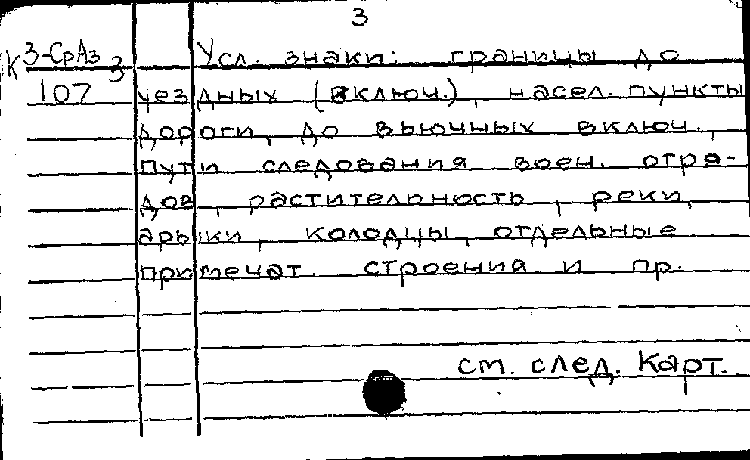 3
К 3-СрАз 3 Усл. знаки: границы до
107 уездных (включ.), насел. пункты
дороги, до вьючных включ.,
пути следования воен. отря-
дов, растительность, реки,
арыки, колодцы, отдельные
примечат. строения и пр.
см. след. карт.